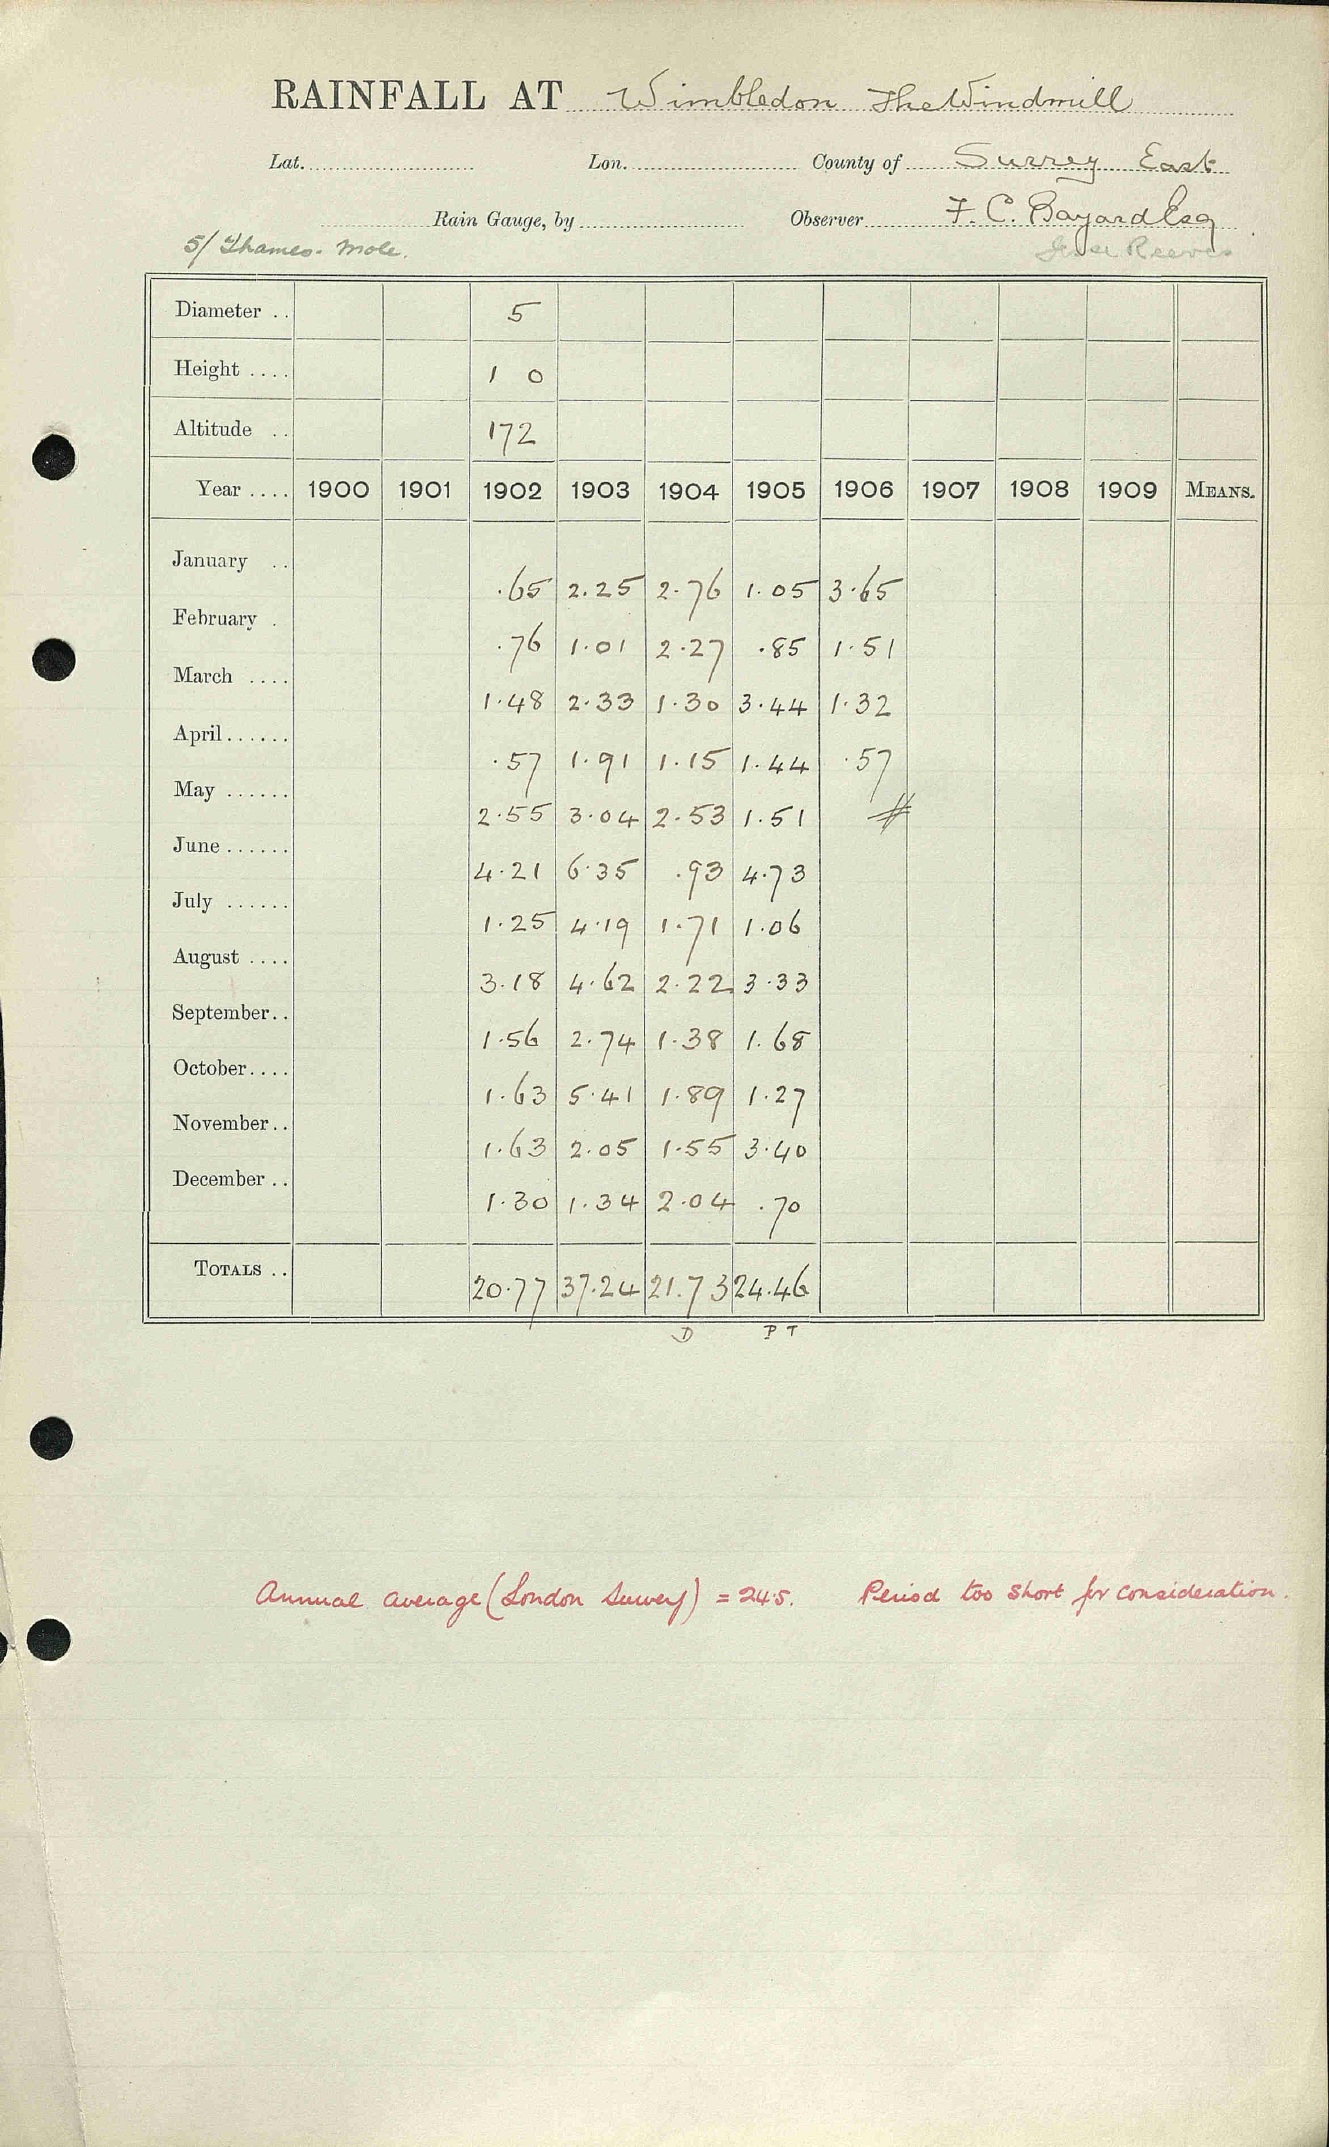 RAINFALL AT Wimbledon The Windmill
Lat. Lon. County of Surrey East
Rain Gauge, by Observer F. C. Bayard Esq
5/ Thames. Mole. Reeves
Diameter .. 5
Height .... 1 0
Altitude .. 172
Year .... 1900 1901 1902 1903 1904 1905 1906 1907 1908 1909 MEANS.
January .. .65 2.25 2.76 1.05 3.65
February . .76 1.01 2.27 .85 1.51
March .... 1.48 2.33 1.30 3.44 1.32
April...... .57 1.91 1.15 1.44 .57
May ...... 2.55 3.04 2.53 1.51 #
June ...... 4.21 6.35 .93 4.73
July ...... 1.25 4.19 1.71 1.06
August .... 3.18 4.62 2.22 3.33
September.. 1.56 2.74 1.38 1.68
October.... 1.63 5.41 1.89 1.27
November.. 1.63 2.05 1.55 3.40
December .. 1.30 1.34 2.04 .70
TOTALS .. 20.77 37.24 21.73 24.46
D P T
Annual average (London Survey) = 24.5. Period too short for consideration.